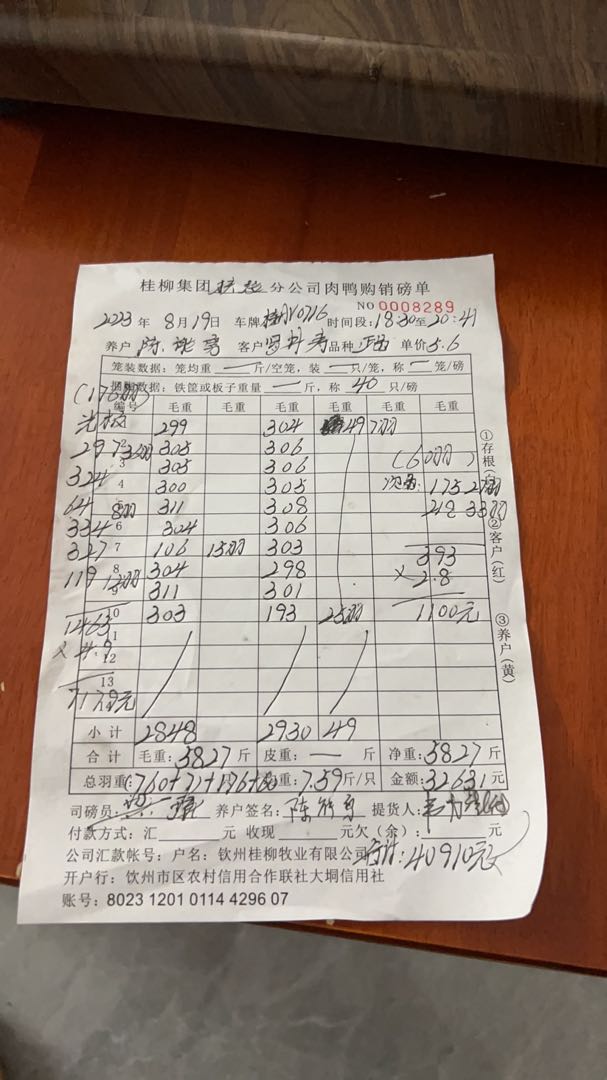 桂柳集团 分公司肉鸭购销磅单
NO 0008289
2023年 8月19日 车牌 时间段:18:30至20:41
养户 陈 客户 品种 单价5.6
笼装数据:笼均重 一 斤/空笼,装 一 只/笼,称 一 笼/磅
数据:铁筐或板子重量 一 斤,称 40 只/磅
编号 毛重 毛重 毛重 毛重 毛重 毛重
299 304 49 7羽
297 2 305 306
3 305 306 (60羽)
324 4 300 305 175 27羽
64 8羽 311 308 218 33羽
334 6 304 306
327 7 106 15羽 303 393
119 8 304 298 ×2.8
9 311 301
1463 10 303 193 25羽 1100元
11
12
13
7179元
小计 2848 2930 49
合计 毛重:5827斤 皮重:一 斤 净重:5827斤
总羽重:760+ 重:7.59斤/只 金额:32631元
司磅员: 养户签名:陈 提货人:
付款方式:汇 元 收现 元欠(余): 元
公司汇款帐号:户名:钦州桂柳牧业有限公司 合计:40910元
开户行:钦州市区农村信用合作联社大垌信用社
账号:8023 1201 0114 4296 07
①存根(
②客户(红)
③养户(黄)